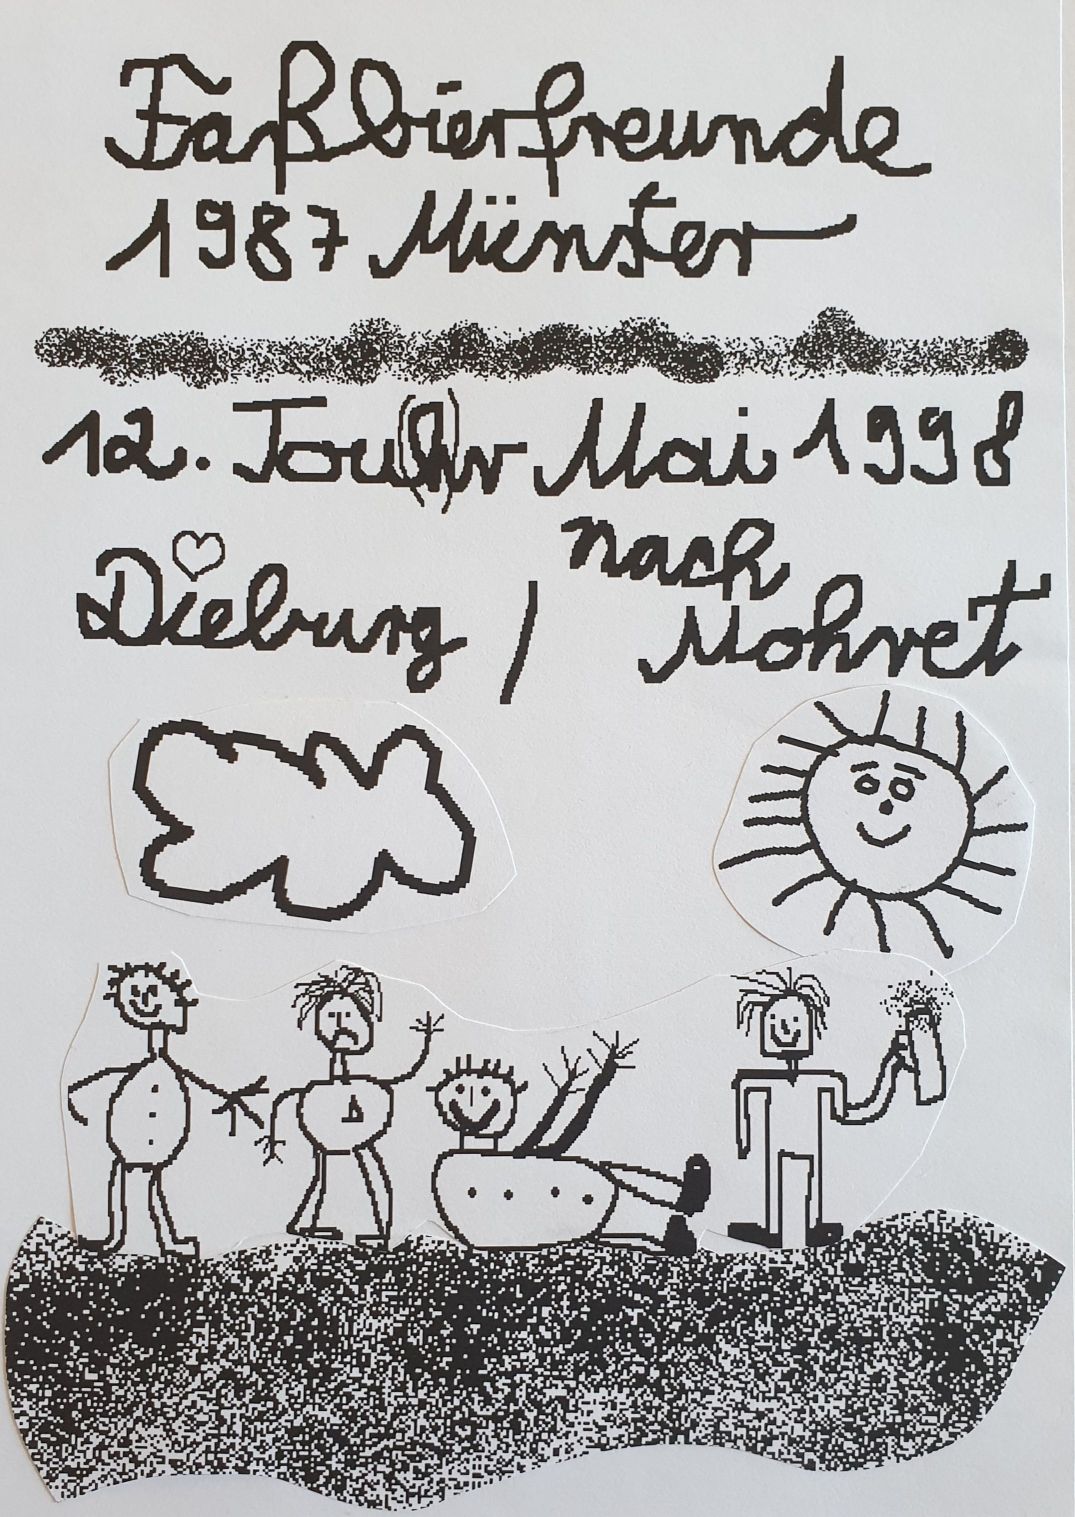 Faßbierfreunde
1987 Münster
12. Tou(h)r Mai 1998
nach
Dieburg / Mohret